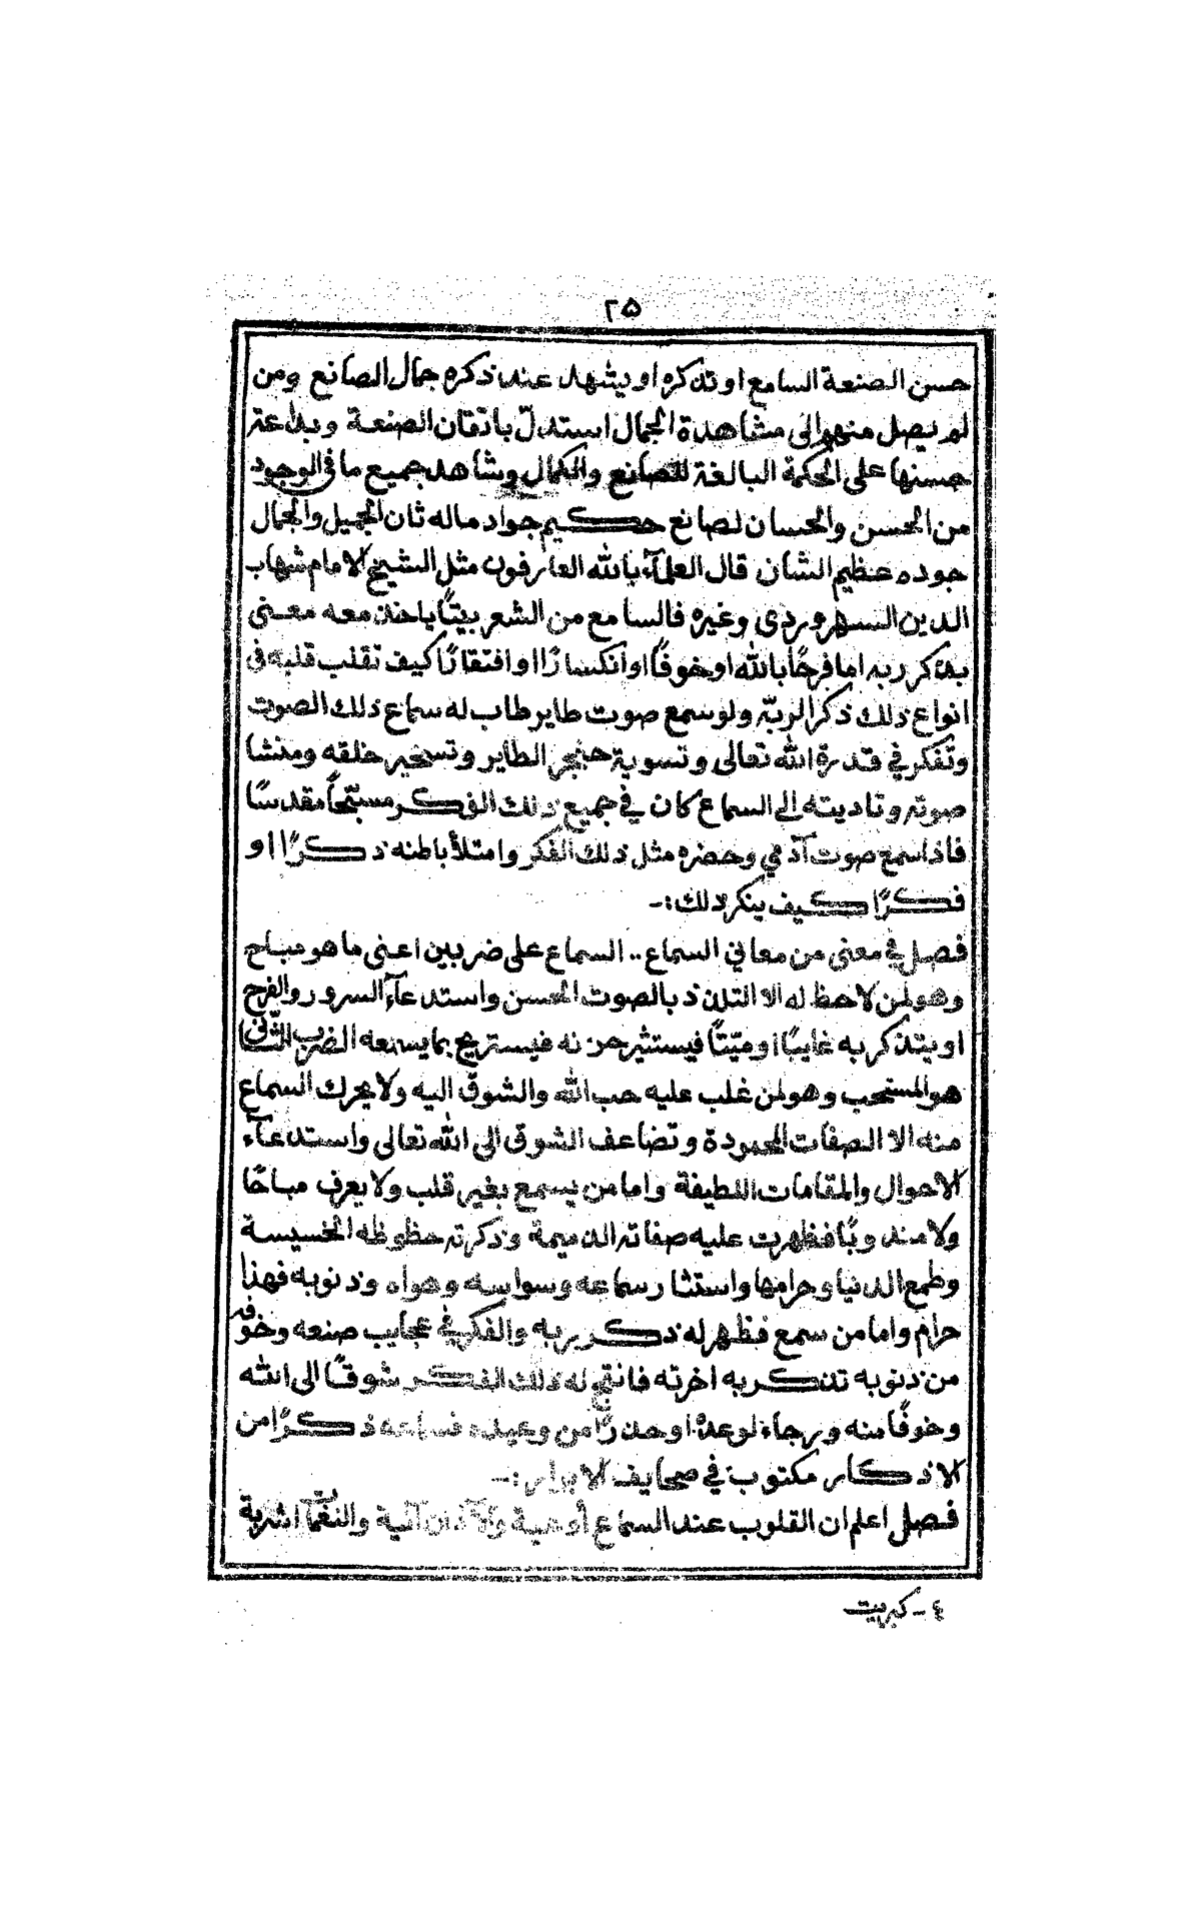 ٢٥
حسن الصنعة السامع او تذكره او يشهد عند ذكره جمال الصانع ومن
لم يصل منهم الى مشاهدة الجمال استدل باتقان الصنعة وبلاغة
حسنها على الحكمة البالغة للصانع والكمال وشاهد جميع ما في الوجود
من الحسن والحسان لصانع حكيم جواد ماله ثان الجميل والجمال
جوده عظيم الشان قال العلمآء بالله العارفون مثل الشيخ الامام شهاب
الدين السهروردي وغيره فالسامع من الشعر بيتًا ياخذ معه معنى
يذكر ربه اما فرحًا بالله او خوفًا او انكسارًا او افتقارًا كيف تقلب قلبه في
انواع ذلك ذكرا لربّه ولو سمع صوت طاير طاب له سماع ذلك الصوت
وتفكر في قدرة الله تعالى وتسوية حنجر الطاير وتسخير خلقه ومنشا
صوته وتاديته الى السماع كان في جميع ذلك الفكر مسبّحاً مقدسًا
فاذا سمع صوت آدمي وحضره مثل ذلك الفكر وامتلأ باطنه ذكرًا او
فكرًا كيف ينكر ذلك :-
فصل في معنى من معاني السماع .. السماع على ضربين اعنى ما هو مباح
وهو لمن لاحظ له الا التلذذ بالصوت الحسن واستدعآء السرور والفرح
او يتذكر به غايبًا او ميّتًا فيستثير حزنه فيستريح بما يسمعه الضرب الثّاني
هو المستحب وهو لمن غلب عليه حب الله والشوق اليه ولا يحرك السماع
منه الا الصفات المحمودة وتضاعف الشوق الى الله تعالى واستدعآء
الاحوال والمقامات اللطيفة واما من يسمع بغير قلب ولا يعرف مباحًا
ولا مندوبًا فظهرت عليه صفاته الذميمة وذكرته حظوظه الخسيسة
وطمع الدنيا وحرامها واستثار سماعه وسواسه وهواه وذنوبه فهذا
حرام واما من سمع فظهر له ذكر بربه والفكر في عجايب صنعه وخوفه
من ذنوبه تذكر به اخرته فانتج له ذلك الفكر شوقًا الى الله
وخوفًا منه ورجاء لوعده او حذرًا من وعيده فسماعه ذكرًا من
الاذكار مكتوب في صحايف الابرار :-
فصل اعلم ان القلوب عند السماع أوعية والآذان آنية والنغمات اشربة
٤ - كبريت